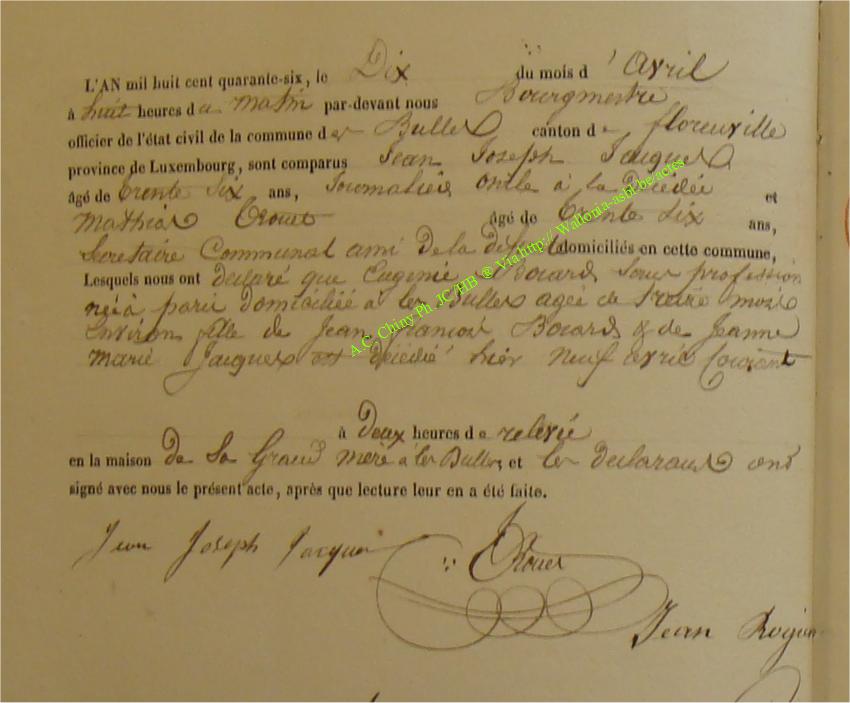 L'AN mil huit cent quarante-six, le Dix du mois d' avril
à huit heures du matin par-devant nous Bourgmestre
officier de l'état civil de la commune des Bulles canton de florenville
province de Luxembourg, sont comparus Jean Joseph Jacques
âgé de trente six ans, Journalier oncle à la Décédée et
Mathias Trouet âgé de trente six ans,
Secretaire Communal ami de la défunte domiciliés en cette commune,
Lesquels nous ont declaré que Eugenie Bocard sans profession
née à paris domiciliée à les Bulles agée de treize mois
environ fille de Jean francois Bocard & de Jeanne
Marie Jacques est décédé hier neuf avril courant
à Deux heures de relevée
en la maison de Sa Grand mere à les Bulles et les declarans ont
signé avec nous le présent acte, après que lecture leur en a été faite.
Jean Joseph Jacques Trouet
Jean
A.C. Chiny Ph. JC/HB ® Via http://Wallonia-asbl.be/actes